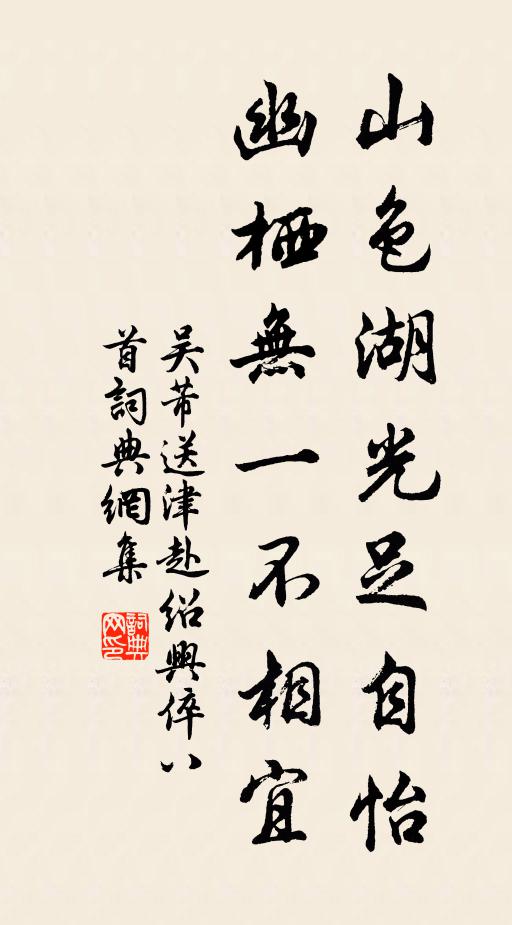 山色湖光足自怡
幽栖無一不相宜
吴芾送津赴绍興倅八
首詞典網集
詞典
网印